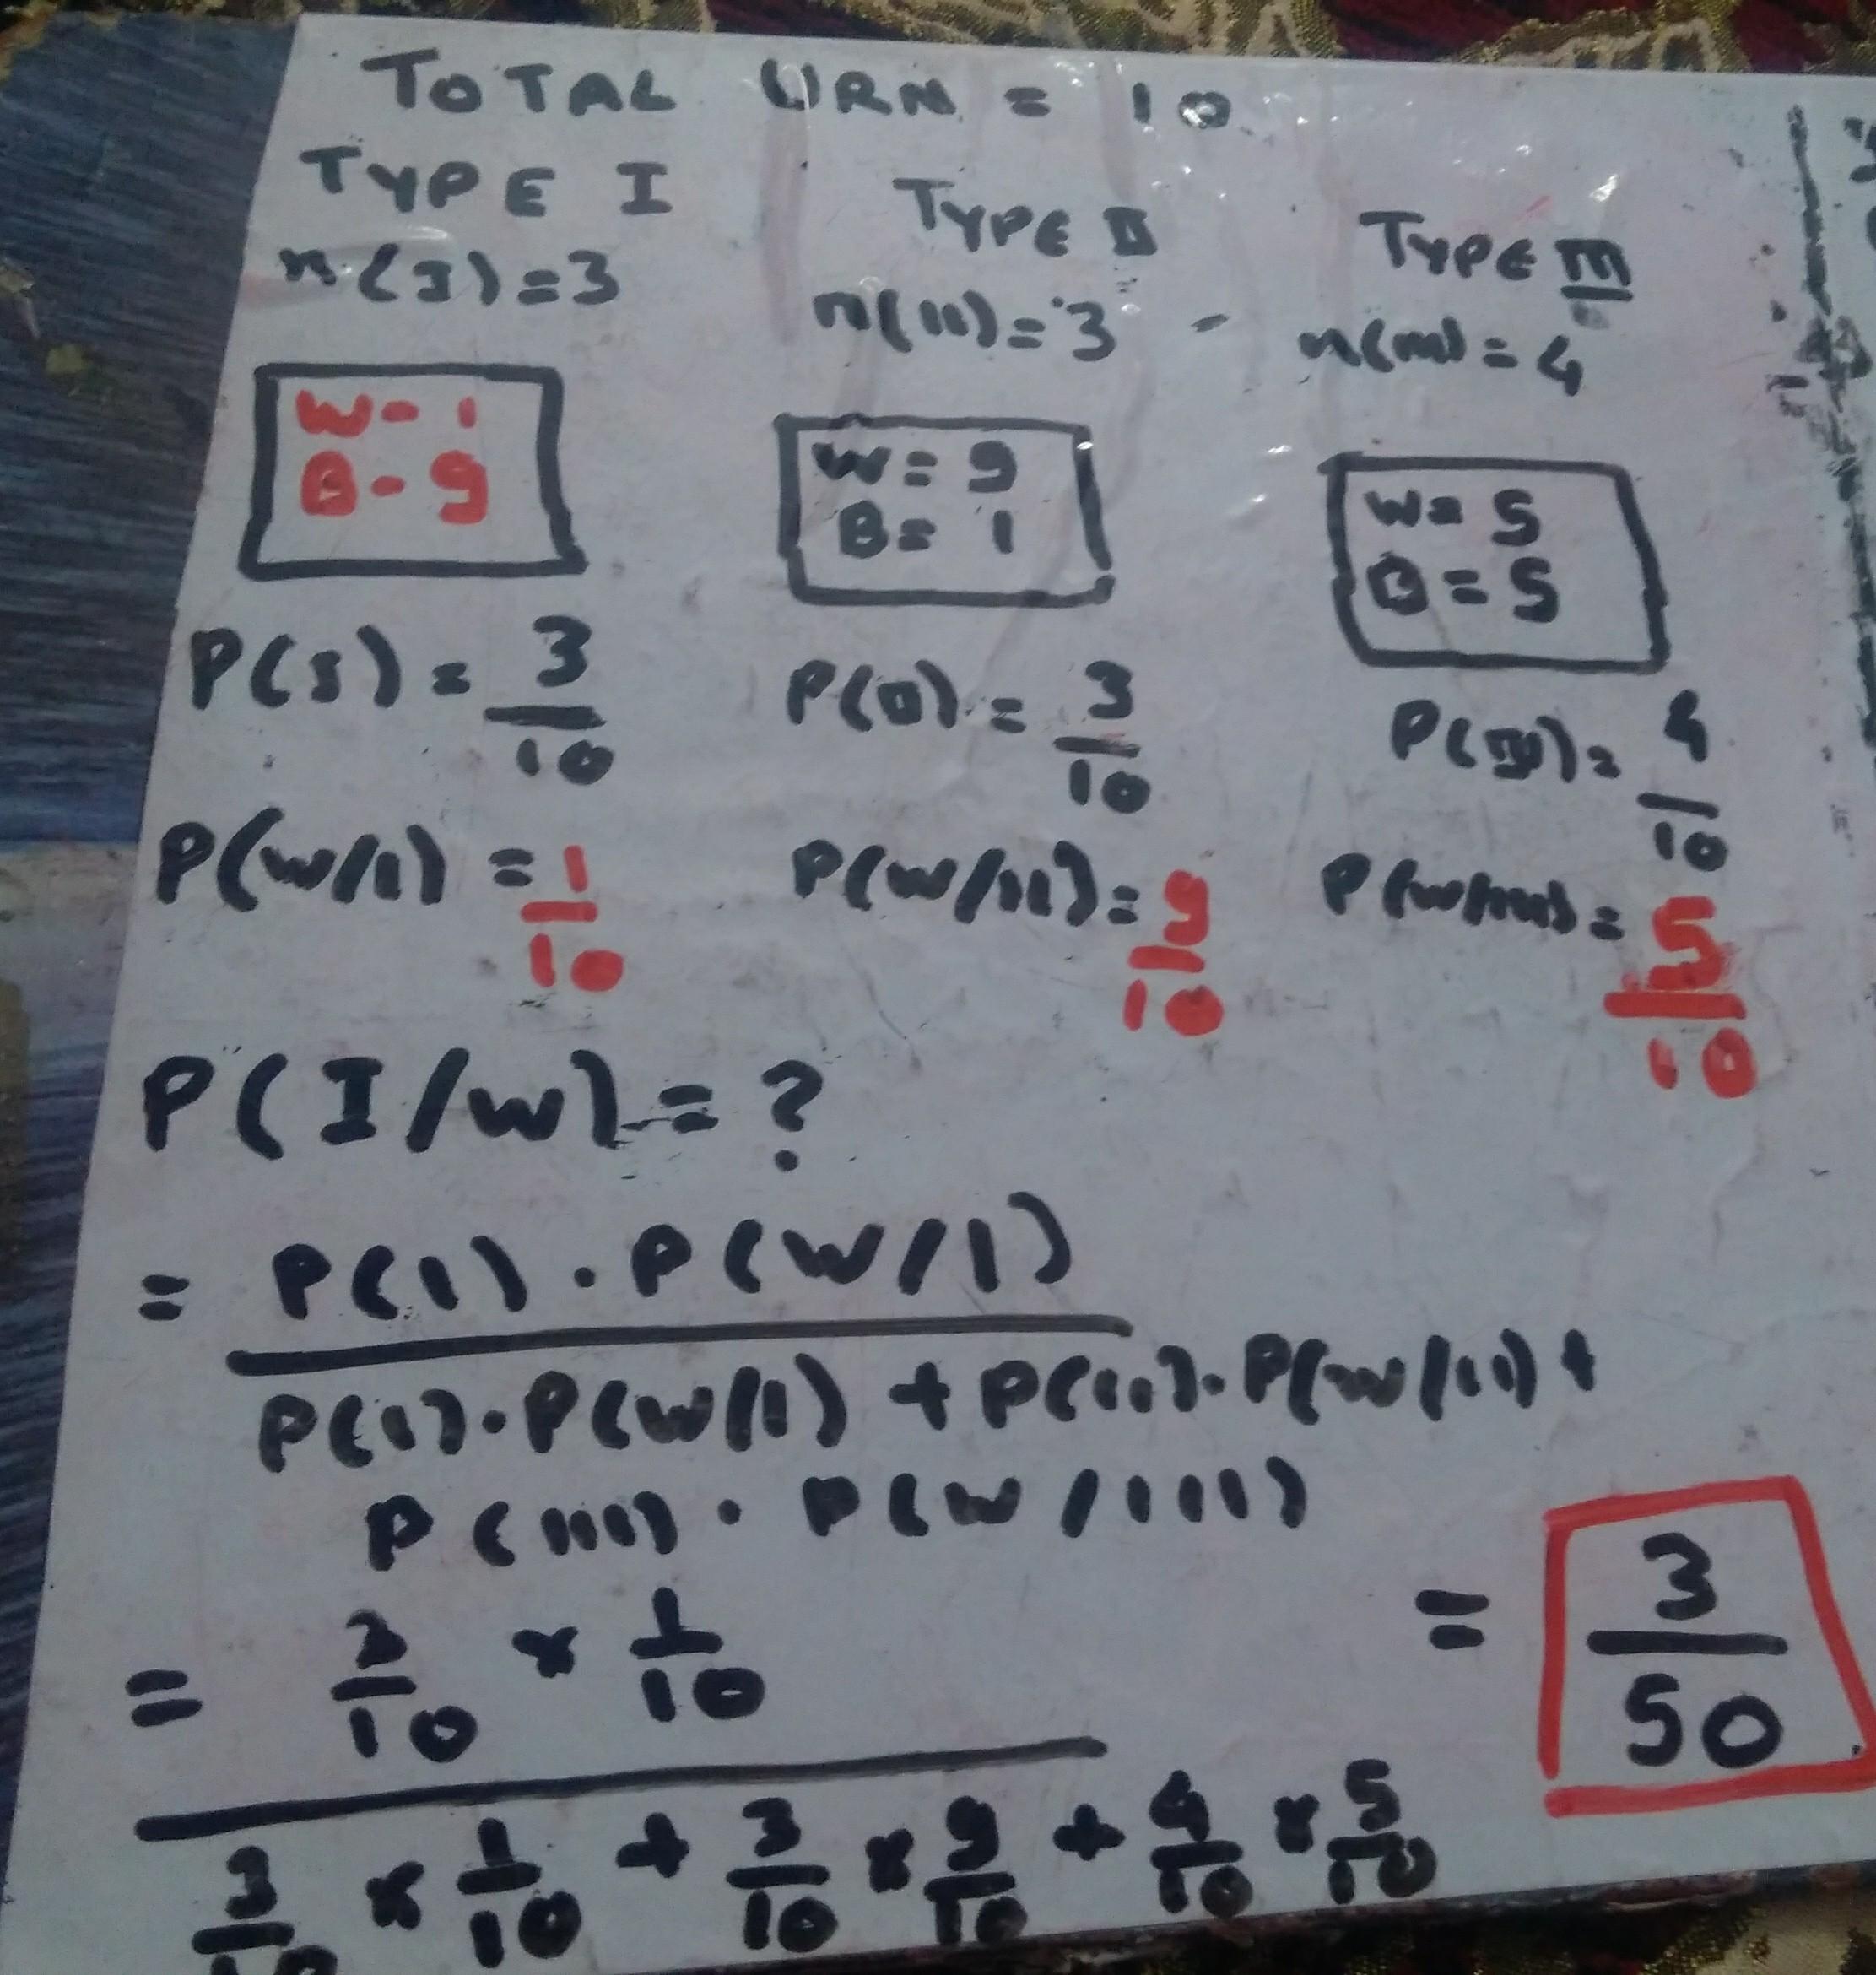 TOTAL URN = 10
TYPE I
n(I)=3
W-1
B-9
P(I)=3/10
P(W/I)=1/10
TYPE II
n(II)=3
W=9
B=1
P(II)=3/10
P(W/II)=9/10
TYPE III
n(III)=4
W=5
B=5
P(III)=4/10
P(W/III)=5/10
P(I/W)=?
= P(I).P(W/I)
P(I).P(W/I)+P(II).P(W/II)+
P(III).P(W/III)
= 3/10 × 1/10
3/10 × 1/10 + 3/10 × 9/10 + 4/10 × 5/10
= 3/50